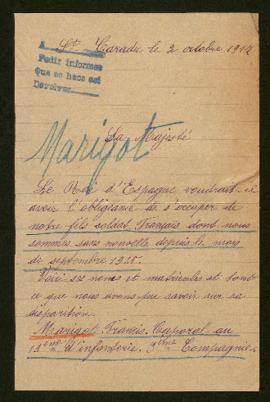 St Caradec le 2 octobre 1917
A
Pedir informes
Que se hace así
Devolver
Marigot
Sa Majesté
Le Roi d'Espagne voudrait-il
avoir l'obligeance de s'occuper de
notre fils soldat Français dont nous
sommes sans nouvelle depuis le mois
de septembre 1915.
Voici ses noms et matricules et tout
ce que nous avons pu savoir sur sa
disparition.
Marigot Francis Caporal au
19ème d'infanterie 9ème Compagnie.